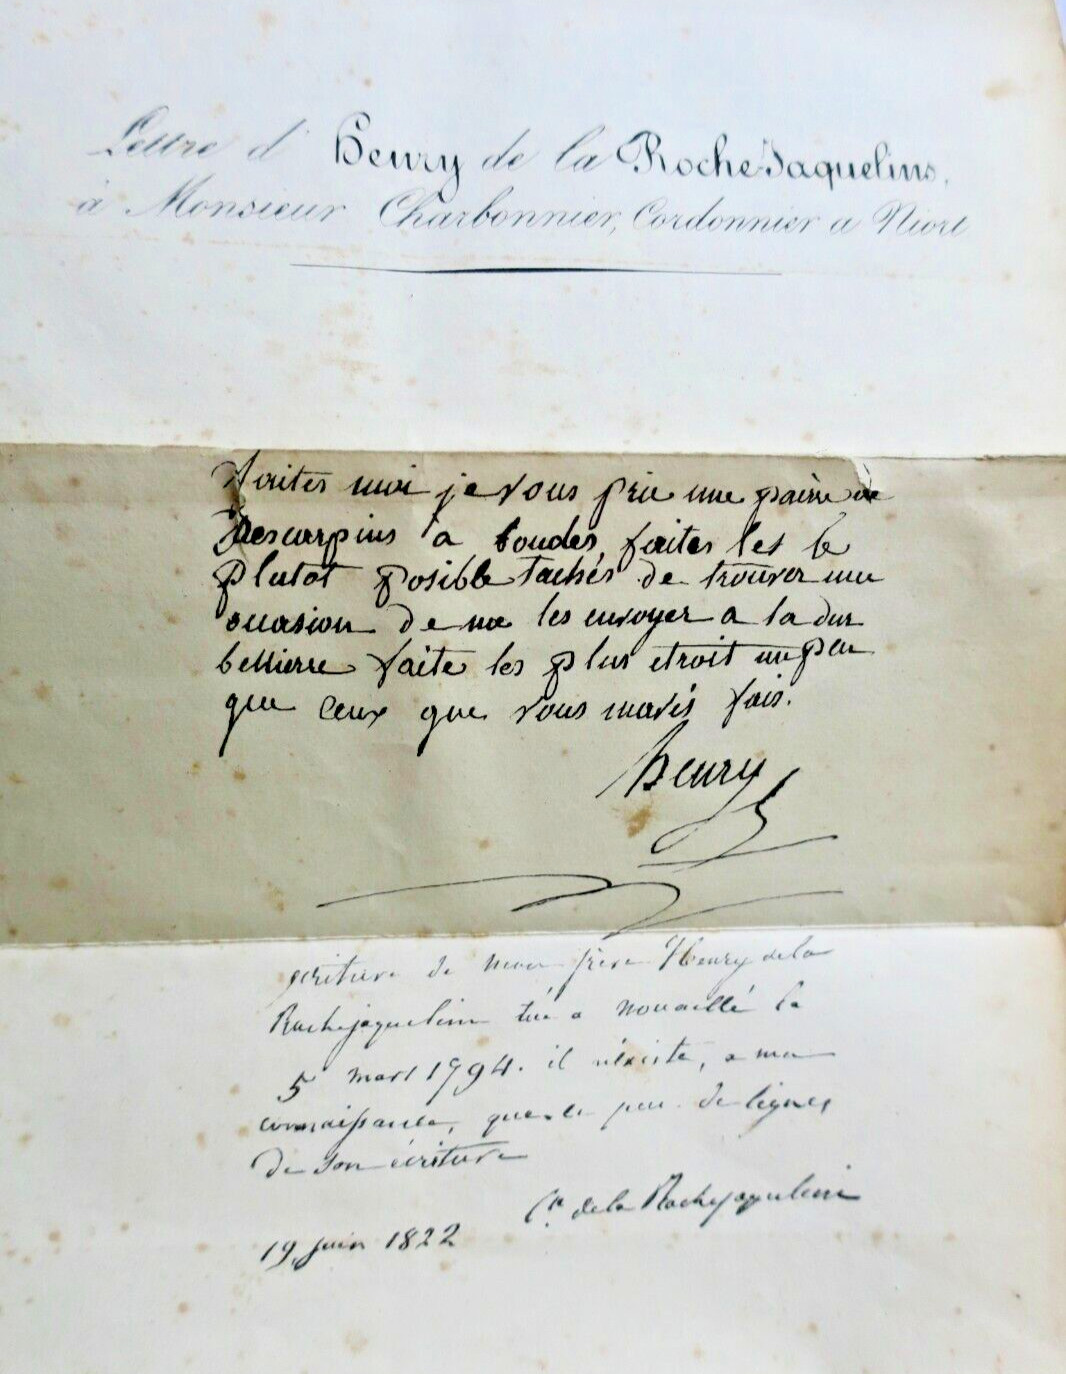 Lettre d'Henry de la Roche-Jaquelins,
à Monsieur Charbonnier, Cordonnier a Niort
faites moi je vous prie une paire de
descarpins a boucles, faites les le
plutot posible tachés de trouver une
occasion de me les envoyer a la dur
bellierre faite les plus etroit un peu
que ceux que vous mavés fais.
henry
ecriture de mon frère Henry de la
Rochejaquelein tué a nouaillé le
5 mars 1794. il n'éxiste, a ma
connaissance, que ce peu de lignes
de son écriture
Cte de la Rochejaquelein
19 juin 1822